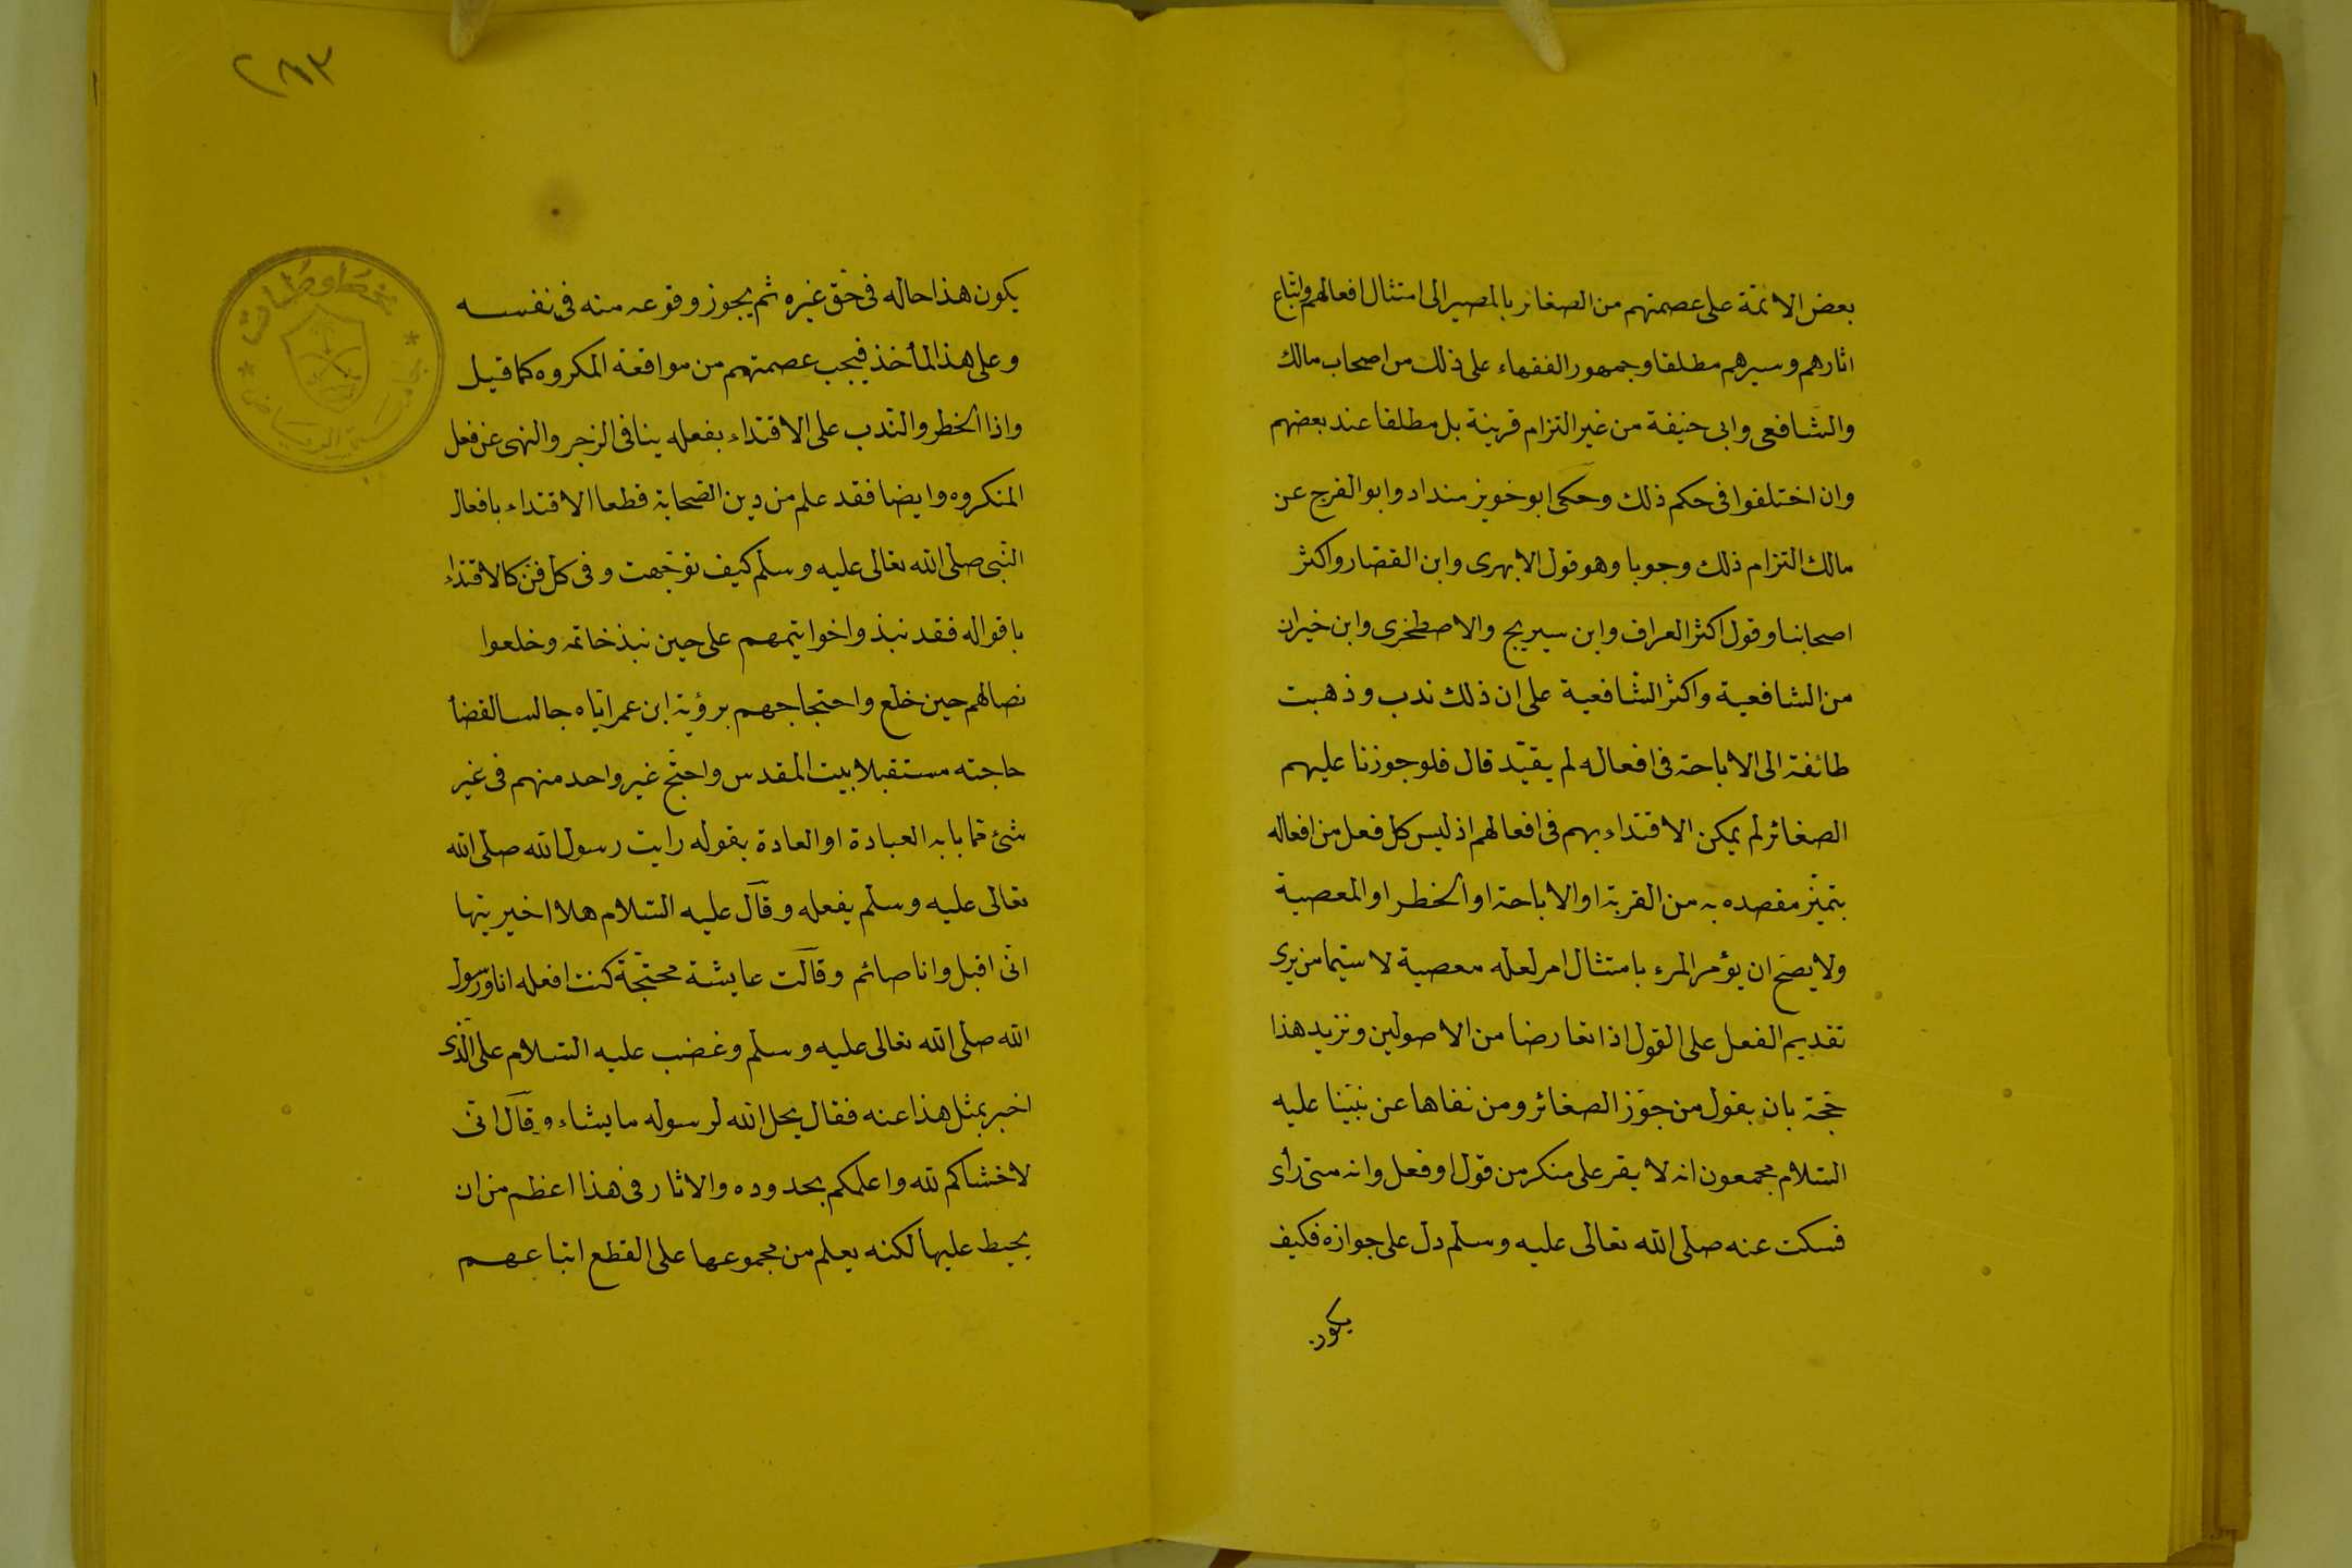 بعض الائمّة على عصمتهم من الصغائر بالمصير الى امتثال افعالهم واتّباع
اثارهم وسيرهم مطلقا وجمهور الفقهاء على ذلك من اصحاب مالك
والشافعى وابى حنيفة من غير التزام قرينة بل مطلقا عند بعضهم
وان اختلفوا فى حكم ذلك وحكى ابو خويز منداد وابو الفرج عن
مالك التزام ذلك وجوبا وهو قول الابهرى وابن القصار واكثر
اصحابنا وقول اكثر العراق وابن سيريج والاصطخرى وابن خيران
من الشافعية واكثر الشافعية على ان ذلك ندب وذهبت
طائفة الى الاباحة فى افعاله لم يقيّد قال فلو جوزنا عليهم
الصغائر لم يمكن الاقتداء بهم فى افعالهم اذ ليس كل فعل من افعاله
يتميّز مقصده به من القربة او الاباحة او الخطر او المعصية
ولا يصحّ ان يؤمر المرء بامتثال امر لعله معصية لا سيّما من يرى
تقديم الفعل على القول اذا تعارضا من الاصولين ونزيد هذا
حجّة بان يقول من جوّز الصغائر ومن نفاها عن نبيّنا عليه
السّلام مجمعون انه لا يقر على منكر من قول او فعل وانه متى رأى
فسكت عنه صلى الله تعالى عليه وسلم دل على جوازه فكيف
يكون
٢٨٣
يكون هذا حاله فى حقّ غيره ثم يجوز وقوعه منه فى نفسه
وعلى هذا المأخذ فيجب عصمتهم من مواقعة المكروه كما قيل
واذا الخطر والندب على الاقتداء بفعله ينافى الزجر والنهى عن فعل
المنكروه وايضا فقد علم من دين الصّحابة قطعا الاقتداء بافعال
النّبى صلى الله تعالى عليه وسلم كيف توجّهت وفى كل فنّ كالاقتداء
باقواله فقد نبذوا خواتيمهم على حين نبذ خاتمه وخلعوا
نصالهم حين خلع واحتجاجهم برؤية ابن عمر ايّاه جالسا لقضأ
حاجته مستقبلا بيت المقدس واحتجّ غير واحد منهم فى غير
شئ ممّا بابه العبادة او العادة بقوله رايت رسول الله صلى الله
تعالى عليه وسلم يفعله وقال عليه السّلام هلا اخبريتها
انى اقبل وانا صائم وقالت عايشة محتجّة كنت افعله انا ورسول
الله صلى الله تعالى عليه وسلم وغضب عليه السّلام على الّذى
اخبر بمثل هذا عنه فقال يحل الله لرسوله ما يشاء وقال انى
لاخشاكم لله واعلمكم بحدوده والاثار فى هذا اعظم من ان
يحيط عليها لكنه يعلم من مجموعها على القطع اتباعهم
مخطوطات
جامعة الرياض